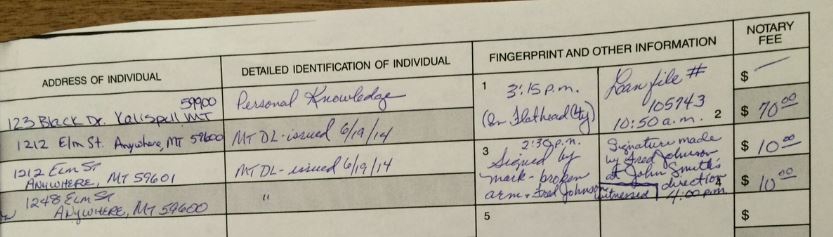 ADDRESS OF INDIVIDUAL
DETAILED IDENTIFICATION OF INDIVIDUAL
FINGERPRINT AND OTHER INFORMATION
NOTARY
FEE
59900
123 Black Dr. Kalispell MT
Personal Knowledge
1
3:15 p.m.
(In Flathead Cty)
Loan file #
105743
10:50 a.m. 2
$ —
1212 Elm St. Anywhere, MT 59600
MT DL - issued 6/19/14
$ 70 00
1212 Elm St
ANYWHERE, MT 59601
MT DL - issued 6/19/14
3
2:30 p.m.
Signed by
mark - broken
arm. Fred Johnson
witnessed
Signature made
by Fred Johnson
at John Smith's
direction
4:00 p.m.
4
$ 10 00
1248 Elm St
ANYWHERE, MT 59600
"
$ 10 00
5
$